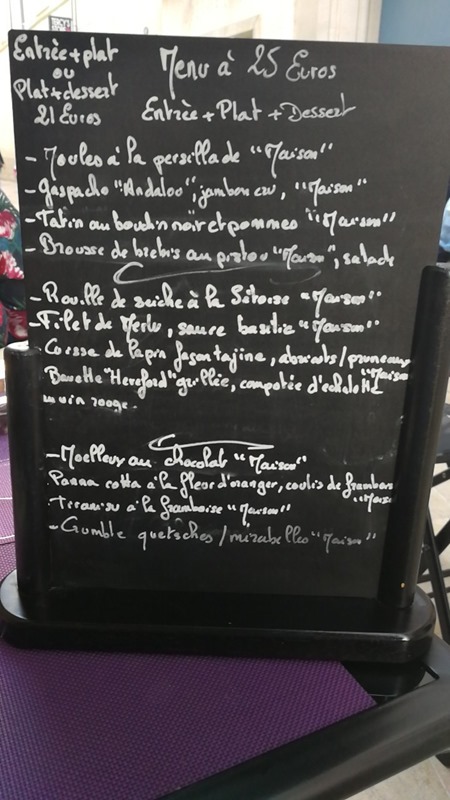 Entrée + plat
ou
Plat + dessert
21 Euros
Menu à 25 Euros
Entrèe + Plat + Dessert
- Moules à la persillade "Maison"
- Gaspacho "Andalou", jambon cru, "Maison"
- Tatin au boudin noir et pommes "Maison"
- Brousse de brebis au pistou "Maison", salade
- Rouille de seiche à la Sétoise "Maison"
- Filet de Merlu, sauce basilic "Maison"
Cuisse de lapin façon tajine, abricots/pruneaux
"Maison
Bavette "Hereford" grillée, compotée d'echalotte
au vin rouge.
- Moelleux au chocolat "Maison"
Panna cotta à la fleur d'oranger, coulis de framboise
"Maison
Tiramisu à la framboise "Maison"
- Crumble quetsches/mirabelles "Maison"